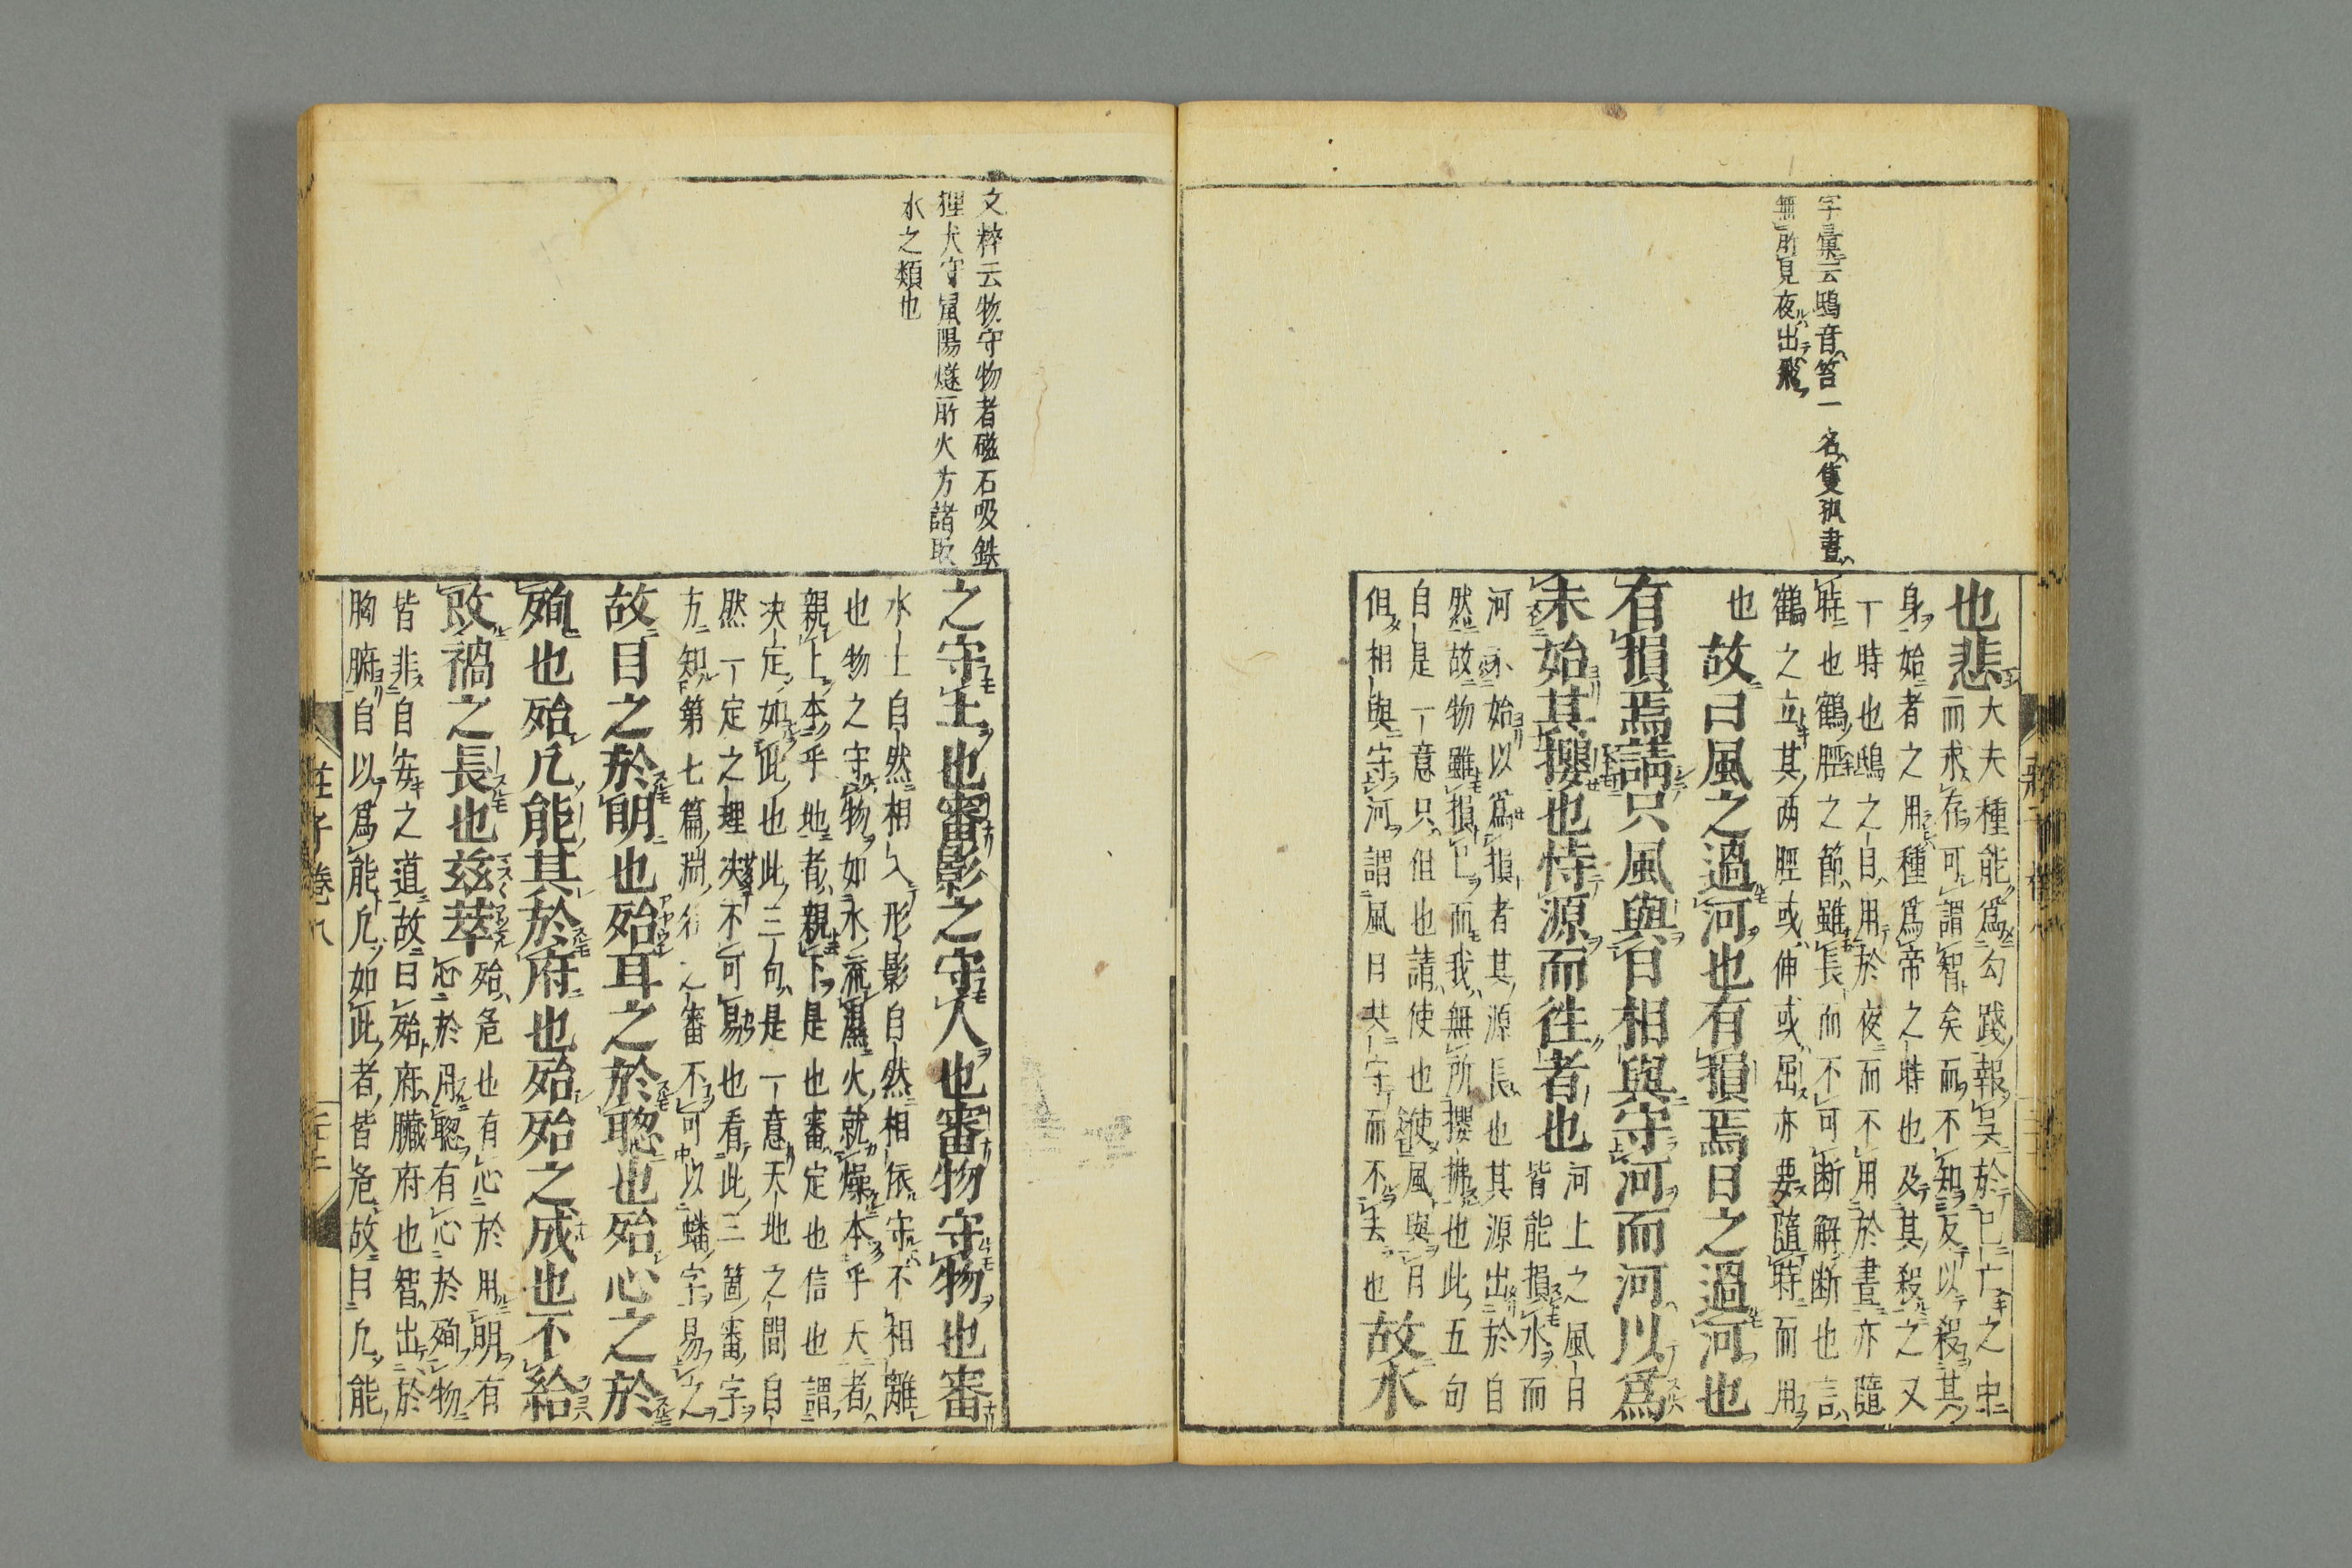 字彙云鴟音笞一名隻狐晝
無所見夜出飛
也悲
大夫種能爲勾踐報吳於已亡之中
而求存可謂智矣而不知反以殺其
身始者之用種爲帝之時也及其殺之又
一時也鴟之目用於夜而不用於晝亦隨
時也鶴脛之節雖長而不可断解断也言
鶴之立其两脛或伸或屈亦要隨時而用
也
故曰風之過河也有損焉日之過河也
有損焉請只風與日相與守河而河以爲
未始其攖也恃源而徃者也
河上之風日
皆能損水而
河不始以爲損者其源長也其源出於自
然故物雖損已而我無所攖拂也此五句
自是一意只但也請使也使風與日
但相與守河謂風日共守而不去也
故水
文粹云物守物者磁石吸鉄
狸犬守鼠陽燧所火方諸取
水之類也
之守土也審影之守人也審物守物也審
水土自然相入形影自然相依守不相離
也物之守物如水流濕火就燥本乎天者
親上本乎地者親下是也審定也信也謂
决定如此也此三句是一意天地之間自
然一定之理决不可易也看此三箇審字
方知第七篇淵之審不可以蟠字易之
故目之於明也殆耳之於聰也殆心之於
殉也殆凡能其於府也殆殆之成也不給
改禍之長也兹萃
殆危也有心於用明有
心於用聰有心於殉物
皆非自安之道故曰殆府臟府也智出於
胸腑自以爲能凡如此者皆危故曰凡能
庄子卷八